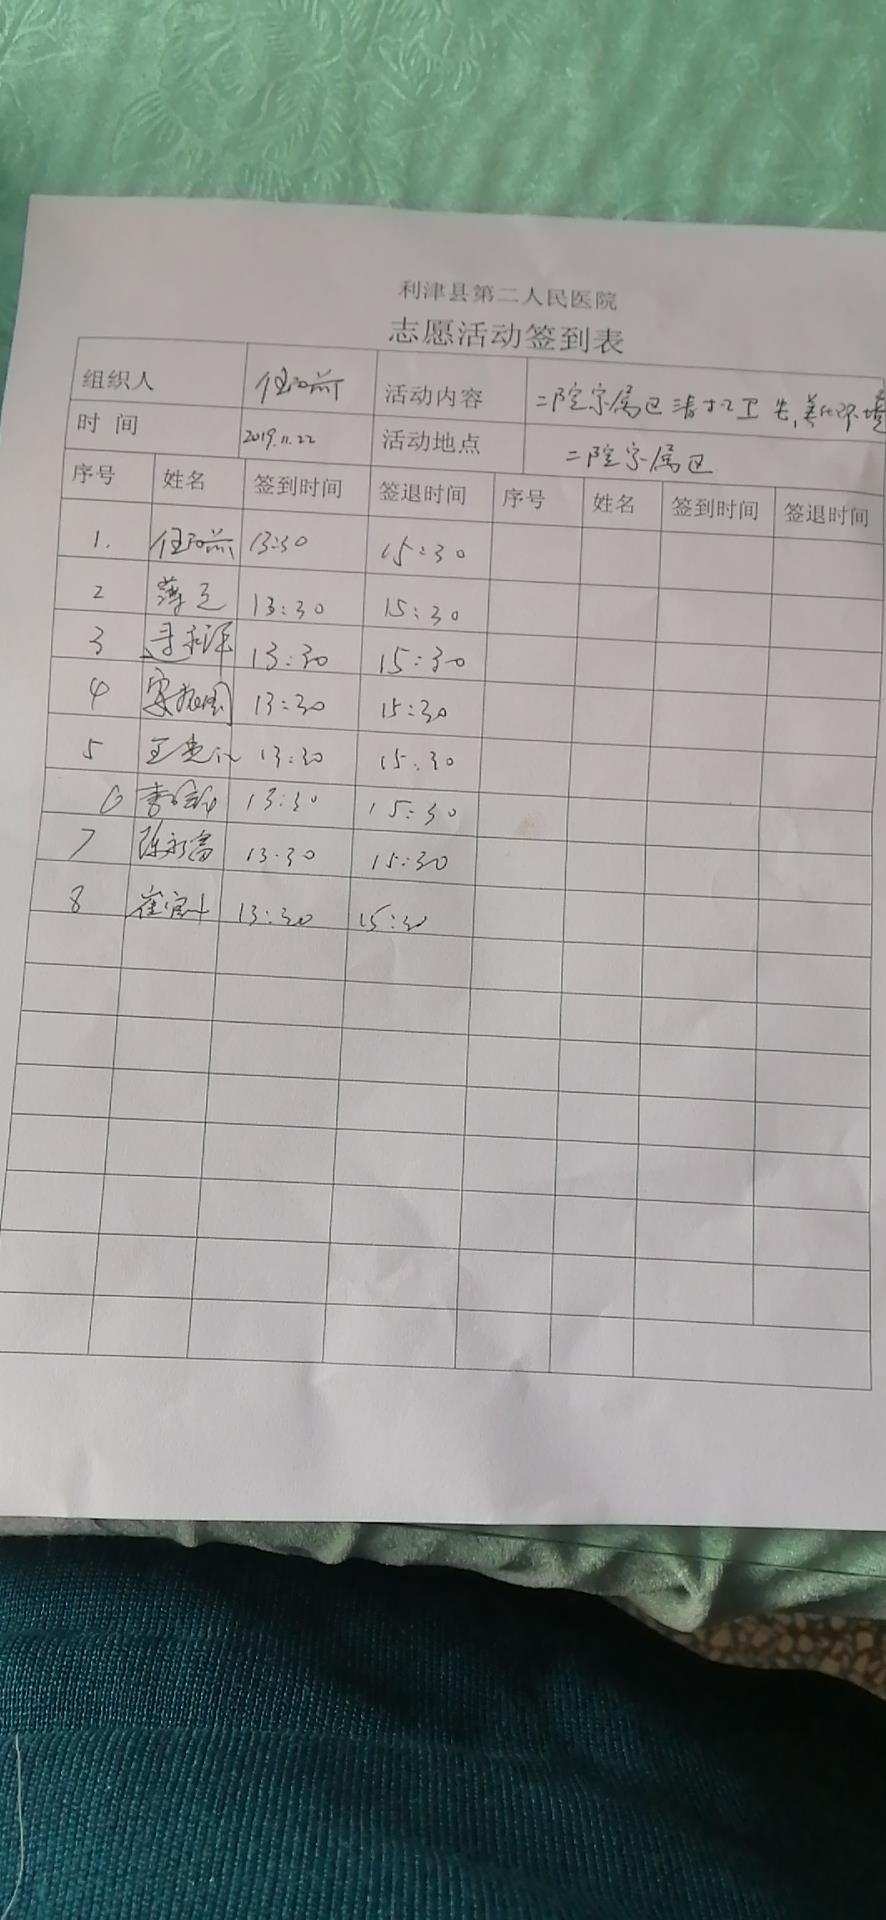 利津县第二人民医院
志愿活动签到表
组织人 活动内容 二院家属区清扫卫生,美化环境
时间 2019.11.22 活动地点 二院家属区
序号 姓名 签到时间 签退时间 序号 姓名 签到时间 签退时间
1. 13:30 15:30
2 13:30 15:30
3 13:30 15:30
4 13:30 15:30
5 13:30 15:30
6 13:30 15:30
7 陈永富 13:30 15:30
8 13:30 15:30